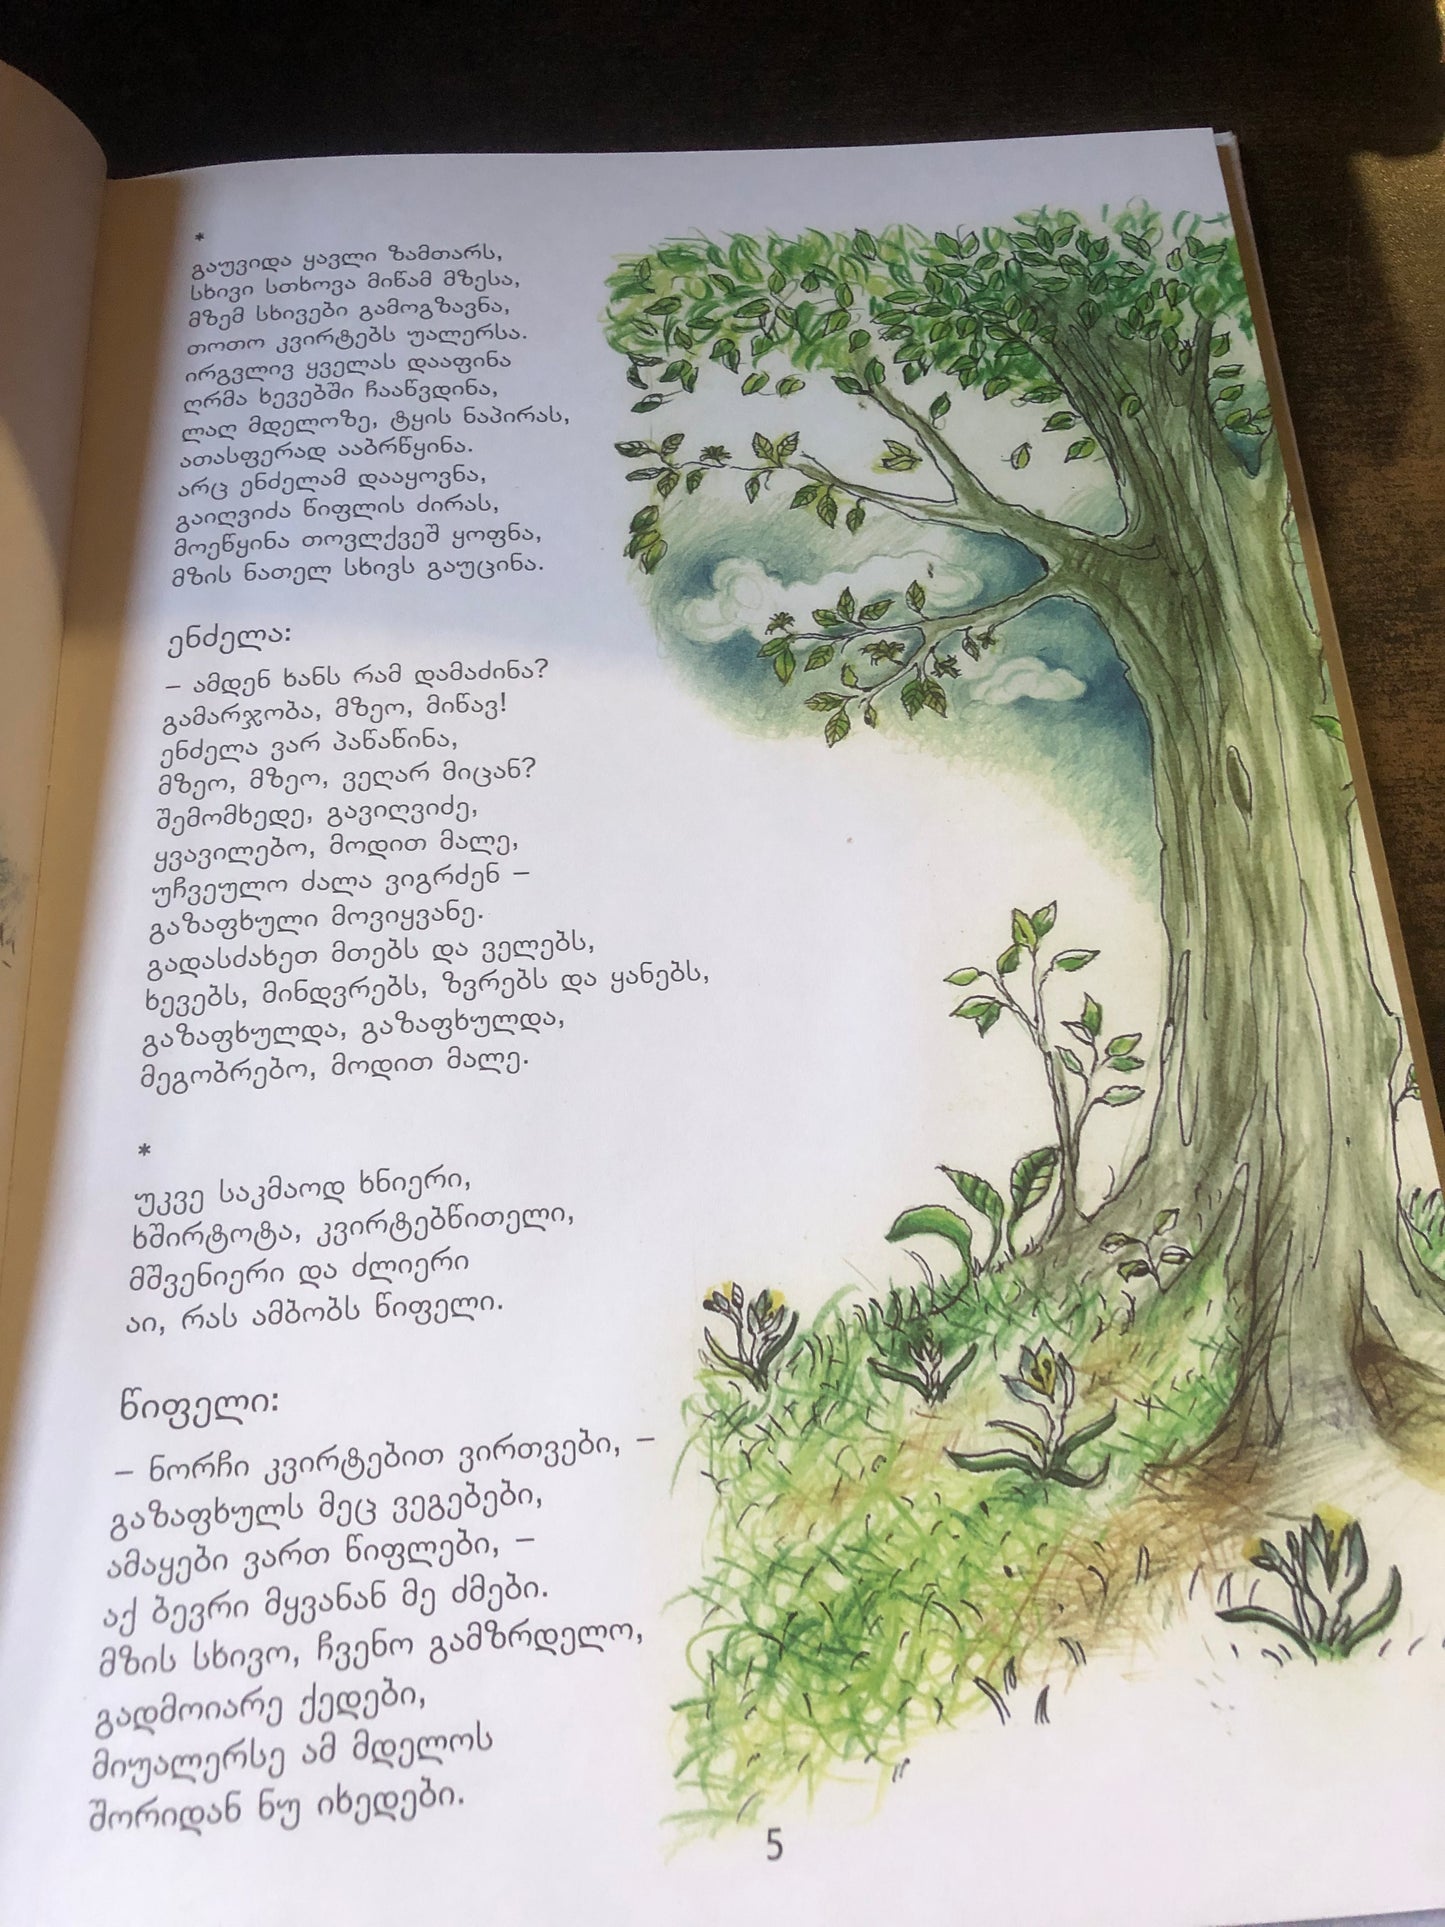 *
გაუვიდა ყავლი ზამთარს,
სხივი სთხოვა მიწამ მზესა,
მზემ სხივები გამოგზავნა,
თოთო კვირტებს უალერსა.
ირგვლივ ყველას დააფინა
ღრმა ხევებში ჩააწვდინა,
ლაღ მდელოზე, ტყის ნაპირას,
ათასფერად ააბრწყინა.
არც ენძელამ დააყოვნა,
გაიღვიძა წიფლის ძირას,
მოეწყინა თოვლქვეშ ყოფნა,
მზის ნათელ სხივს გაუცინა.
ენძელა:
– ამდენ ხანს რამ დამაძინა?
გამარჯობა, მზეო, მიწავ!
ენძელა ვარ პაწაწინა,
მზეო, მზეო, ვეღარ მიცან?
შემომხედე, გავიღვიძე,
ყვავილებო, მოდით მალე,
უჩვეულო ძალა ვიგრძენ –
გაზაფხული მოვიყვანე.
გადასძახეთ მთებს და ველებს,
ხევებს, მინდვრებს, ზვრებს და ყანებს,
გაზაფხულდა, გაზაფხულდა,
მეგობრებო, მოდით მალე.
*
უკვე საკმაოდ ხნიერი,
ხშირტოტა, კვირტებწითელი,
მშვენიერი და ძლიერი
აი, რას ამბობს წიფელი.
წიფელი:
– ნორჩი კვირტებით ვირთვები, –
გაზაფხულს მეც ვეგებები,
ამაყები ვართ წიფლები, –
აქ ბევრი მყვანან მე ძმები.
მზის სხივო, ჩვენო გამზრდელო,
გადმოიარე ქედები,
მიუალერსე ამ მდელოს
შორიდან ნუ იხედები.
5